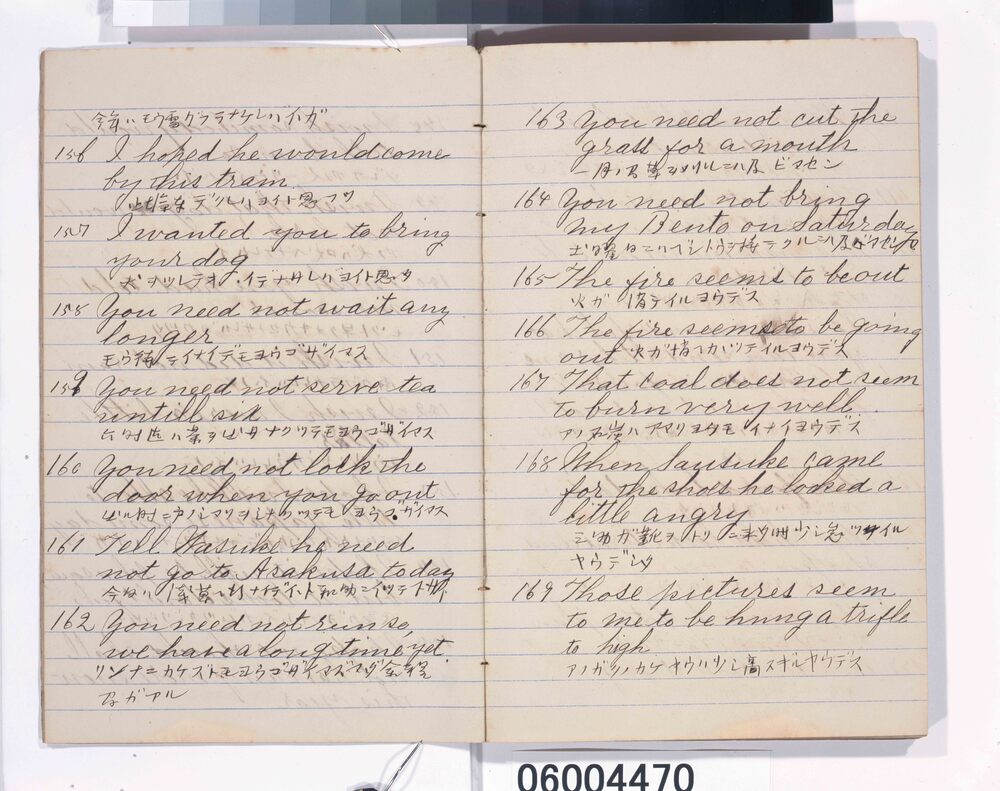 今年ハモウ雪ガフラナケレバイイガ
156 I hoped he would come
by this train
此汽車デクルハヨイト思フツ
157 I wanted you to bring
your dog
犬ヲツレテオイデナサレバヨイト思タ
158 You need not wait any
longer
モウ待テイナイデモヨウゴザイマス
159 You need not serve tea
untill six
六時迄ハ茶ヲ出サナクツテモヨウゴザイマス
160 You need not lock the
door when you go out
出ル時ニカバンマリヲシナクツテモヨウゴザイマス
161 Tell Wasuke he need
not go to Asakusa today
今日ハ浅草ニ行ナイデイイト和助ニイツテ
162 You need not run so,
we have a long time yet.
ソンナニカケズトモヨウゴザイマスマダ余程
ガアル
163 You need not cut the
grass for a mouth
一月ノ間草ヲカルニハ及ビマセン
164 You need not bring
my Bento on Saturday
土曜日ニハベントウヲ持テクルニハ及ビマセン
165 The fire seems to be out
火ガ消テイルヨウデス
166 The fire seems to be going
out 火ガ消ヘカカツテイルヨウデス
167 That coal does not seem
to burn very well
アノ石炭ハアマリヨクモイナイヨウデス
168 When Sausuke came
for the shoes he looked a
little angry
ガ靴ヲトリニ来タ時少シ怒ツテイル
ヤウデシタ
169 Those pictures seem
to me to be hung a trifle
to high
アノガクノカケヤウハ少シ高スギルヤウデス
06004470